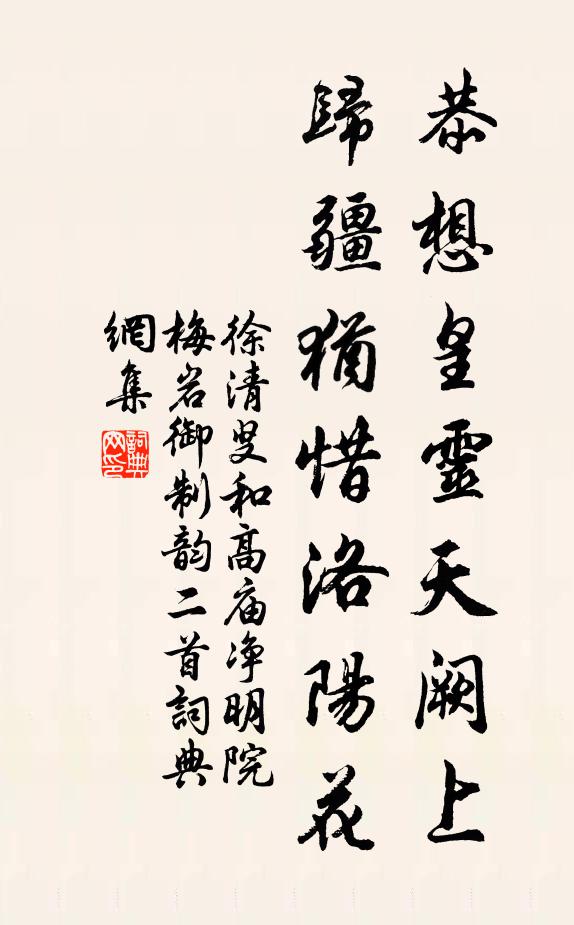 恭想皇靈天闕上
歸疆猶惜洛陽花
徐清叟和高庙净明院
梅岩御制韵二首詞典
網集
詞典
网印